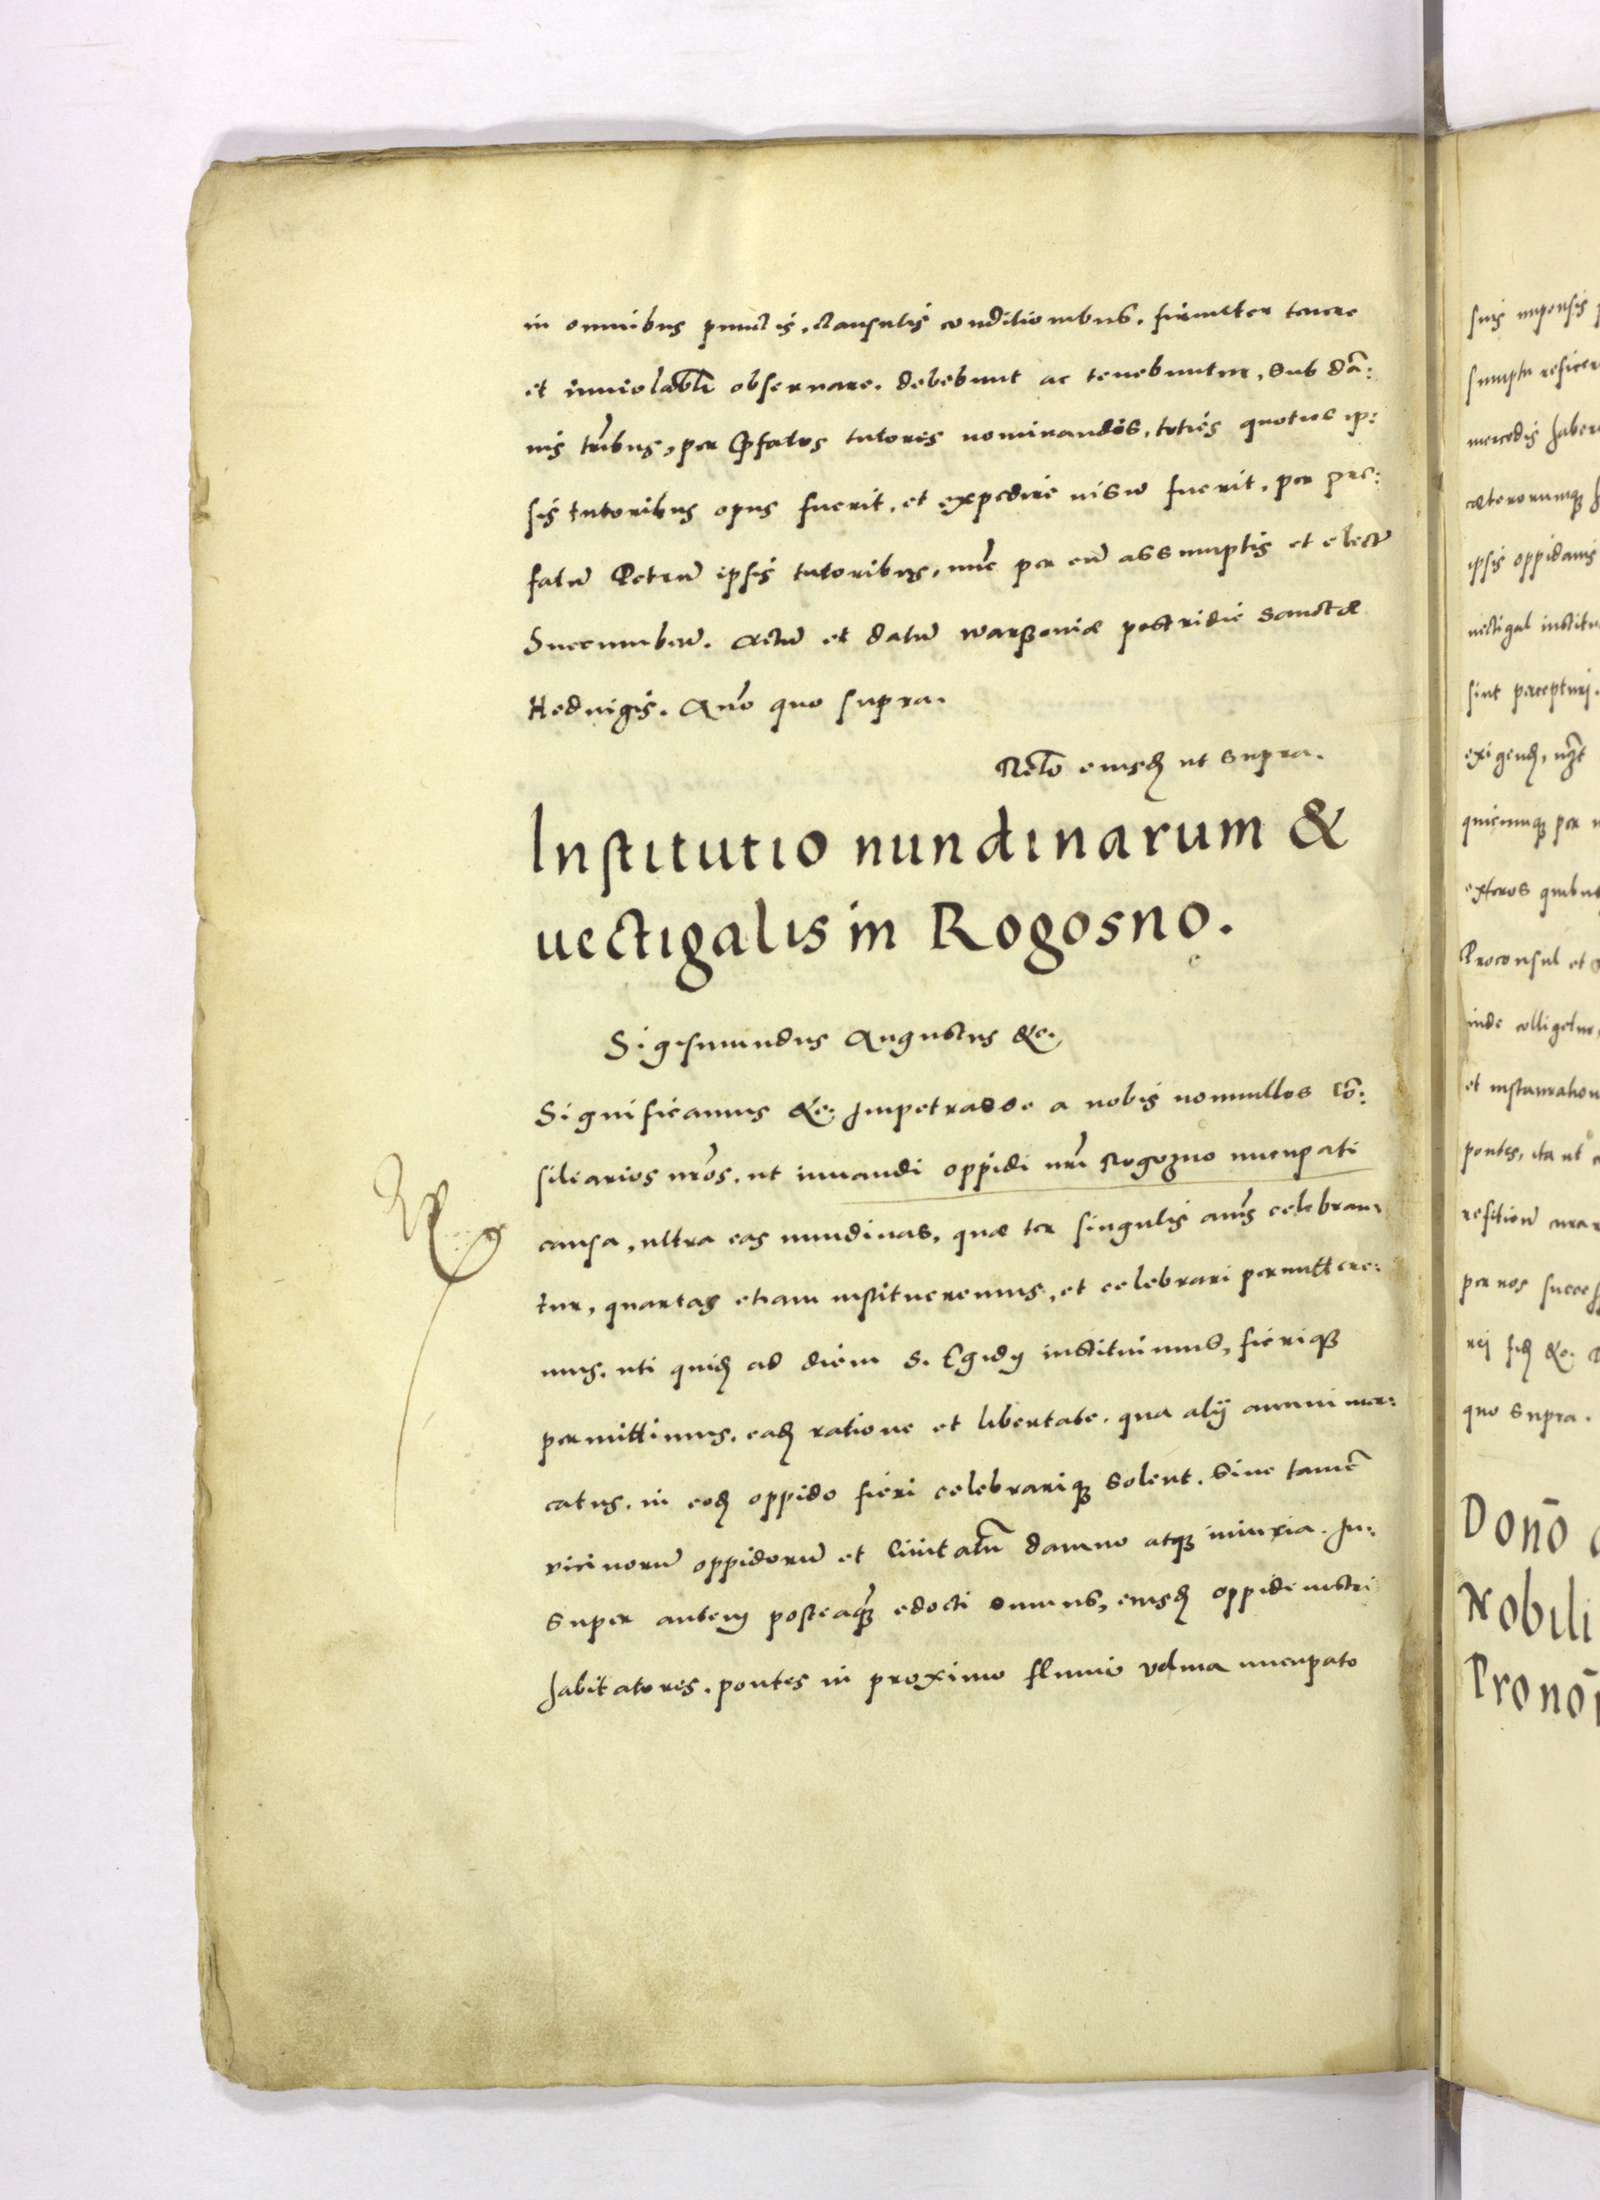 in omnibus punctis, clausulis conditionibus, firmiter tenere
et inuiolabl̃i obseruare, debebunt ac tenebuntur, sub dã:
nis tribus, per p̃fatos tutores nominandis, toties quoties ip:
sis tutoribus opus fuerit, et expedire uisũ fuerit, per pre:
fatũ Petrũ ipsis tutoribus, nũc per eũ assumptis et electis
Succumbẽdũ. Actũ et datũ Warsoniæ postridie Sanctæ
Heduigis. Año quo supra.
Relõ eiusdẽ ut supra.
Institutio nundinarum &
uectigalis in Rogosno.
Sigismundus Augustus &c.
Significamus &c. Impetrasse a nobis nonnullos Cõ:
siliarios nr̃os, ut iuuandi oppidi nr̃i Rogozno nuncupati
causa, ultra eas nundinas, quæ ter singulis añis celebran:
tur, quartas etiam institueremus, et celebrari permittere:
mus, uti quidẽ ad diem S. Egidy instituimus, fieriq̃
permittimus, eadẽ ratione et libertate, qua alij annui mer:
catus, in eodẽ oppido fieri celebrariq̃ solent, sine tamẽ
vicinorũ oppidorũ et Ciuitatũ damno atq̃ iniuria. In:
super autem posteaq̃ edocti sumus, eiusdẽ oppidi nostri
habitatores, pontes in proximo fluuio Velna nuncupato
suis impensis
sumptu reficere
mercedis habere
cæterorumq̃
ipsis oppidanis
uectigal institu
sint percepturi.
exigendẽ,
quicunq̃ per
exteros quibus
Proconsul et
inde colligetur,
et instauration
pontes, ita ut
refitionẽ
per nos
rej &c.
quo supra.
Donõ
Nobili
Pronõ